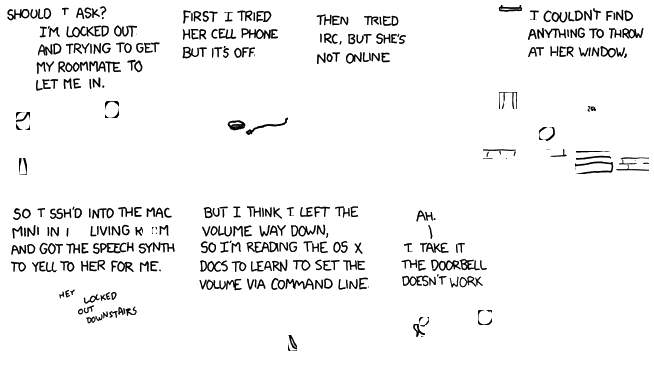 SHOULD I ASK?
I'M LOCKED OUT
AND TRYING TO GET
MY ROOMMATE TO
LET ME IN.
FIRST I TRIED
HER CELL PHONE
BUT IT'S OFF.
THEN TRIED
IRC, BUT SHE'S
NOT ONLINE
I COULDN'T FIND
ANYTHING TO THROW
AT HER WINDOW,
SO I SSH'D INTO THE MAC
MINI IN LIVING
AND GOT THE SPEECH SYNTH
TO YELL TO HER FOR ME.
HEY
LOCKED
OUT
DOWNSTAIRS
BUT I THINK I LEFT THE
VOLUME WAY DOWN,
SO I'M READING THE OS X
DOCS TO LEARN TO SET THE
VOLUME VIA COMMAND LINE.
AH.
I TAKE IT
THE DOORBELL
DOESN'T WORK